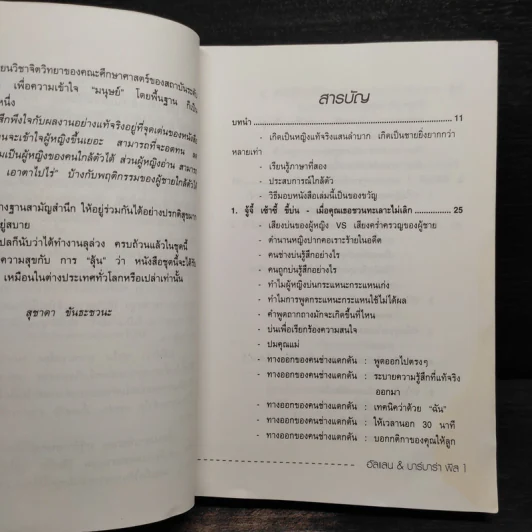 ยนวิชาจิตวิทยาของคณะศึกษาศาสตร์ของสถาบันระดับ
เพื่อความเข้าใจ "มนุษย์" โดยพื้นฐาน ก็เป็น
หนึ่ง
สึกพึงใจกับผลงานอย่างแท้จริงอยู่ที่จุดเด่นของหนังสือ
านจะเข้าใจผู้หญิงขึ้นเยอะ สามารถที่จะอดทน
มเป็นผู้หญิงของคนใกล้ตัวได้ ส่วนผู้หญิงอ่าน สามารถ
เอาตาไปไร่" บ้างกับพฤติกรรมของผู้ชายใกล้ตัวได้
างฐานสามัญสำนึก ให้อยู่ร่วมกันได้อย่างปรกติสุขมาก
ยู่สบาย
ปลก็นับว่าได้ทำงานลุล่วง ครบถ้วนแล้วในชุดนี้
ความสุขกับ การ "ลุ้น" ว่า หนังสือชุดนี้จะได้รับ
เหมือนในต่างประเทศทั่วโลกหรือเปล่าเท่านั้น
สุชาดา ขันธะชวนะ
สารบัญ
บทนำ ........ 11
- เกิดเป็นหญิงแท้จริงแสนลำบาก เกิดเป็นชายยิ่งยากกว่า
หลายเท่า
- เรียนรู้ภาษาที่สอง
- ประสบการณ์ใกล้ตัว
- วิธีมอบหนังสือเล่มนี้เป็นของขวัญ
1. รู้จี้ เซ้าซี้ ขี้บ่น - เมื่อคุณเธอชวนทะเลาะไม่เลิก ........ 25
- เสียงบ่นของผู้หญิง VS เสียงคร่ำครวญของผู้ชาย
- ตำนานหญิงปากคอเราะร้ายในอดีต
- คนช่างบ่นรู้สึกอย่างไร
- คนถูกบ่นรู้สึกอย่างไร
- ทำไมผู้หญิงบ่นกระแนะกระแหนเก่ง
- ทำไมการพูดกระแนะกระแหนใช้ไม่ได้ผล
- คำพูดถากถางมักจะเกิดขึ้นที่ไหน
- บ่นเพื่อเรียกร้องความสนใจ
- ปมคุณแม่
- ทางออกของคนช่างแดกดัน : พูดออกไปตรงๆ
- ทางออกของคนช่างแดกดัน : ระบายความรู้สึกที่แท้จริง
ออกมา
- ทางออกของคนช่างแดกดัน : เทคนิคว่าด้วย "ฉัน"
- ทางออกของคนช่างแดกดัน : ให้เวลานอก 30 นาที
- ทางออกของคนช่างแดกดัน : บอกกติกาของคุณให้ลูก
อัลแลน & บาร์บาร่า พีส 1